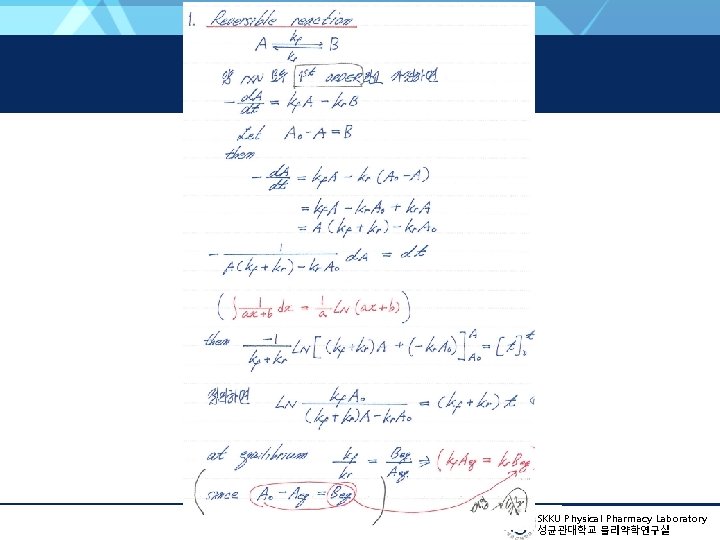 1. Reversible reaction
A ⇌ B
kf
kr
양 rxn 모두 1st ORDER라고 가정하면
- dA/dt = kfA - krB
Let A₀ - A = B
then
- dA/dt = kfA - kr (A₀ - A)
= kfA - krA₀ + krA
= A (kf + kr) - krA₀
- 1/(A(kf + kr) - krA₀) dA = dt
( ∫ 1/(ax+b) dx = 1/a LN (ax+b) )
then -1/(kf+kr) LN [ (kf+kr)A + (-krA₀) ]ᴬ_A₀ = [t]ᵗ
정리하면 LN kfA₀/((kf+kr)A - krA₀) = (kf + kr) t
at equilibrium kf/kr = Beq/Aeq ⇒ (kfAeq = krBeq
(since A₀ - Aeq = Beq)
SKKU Physical Pharmacy Laboratory
성균관대학교 물리약학연구실